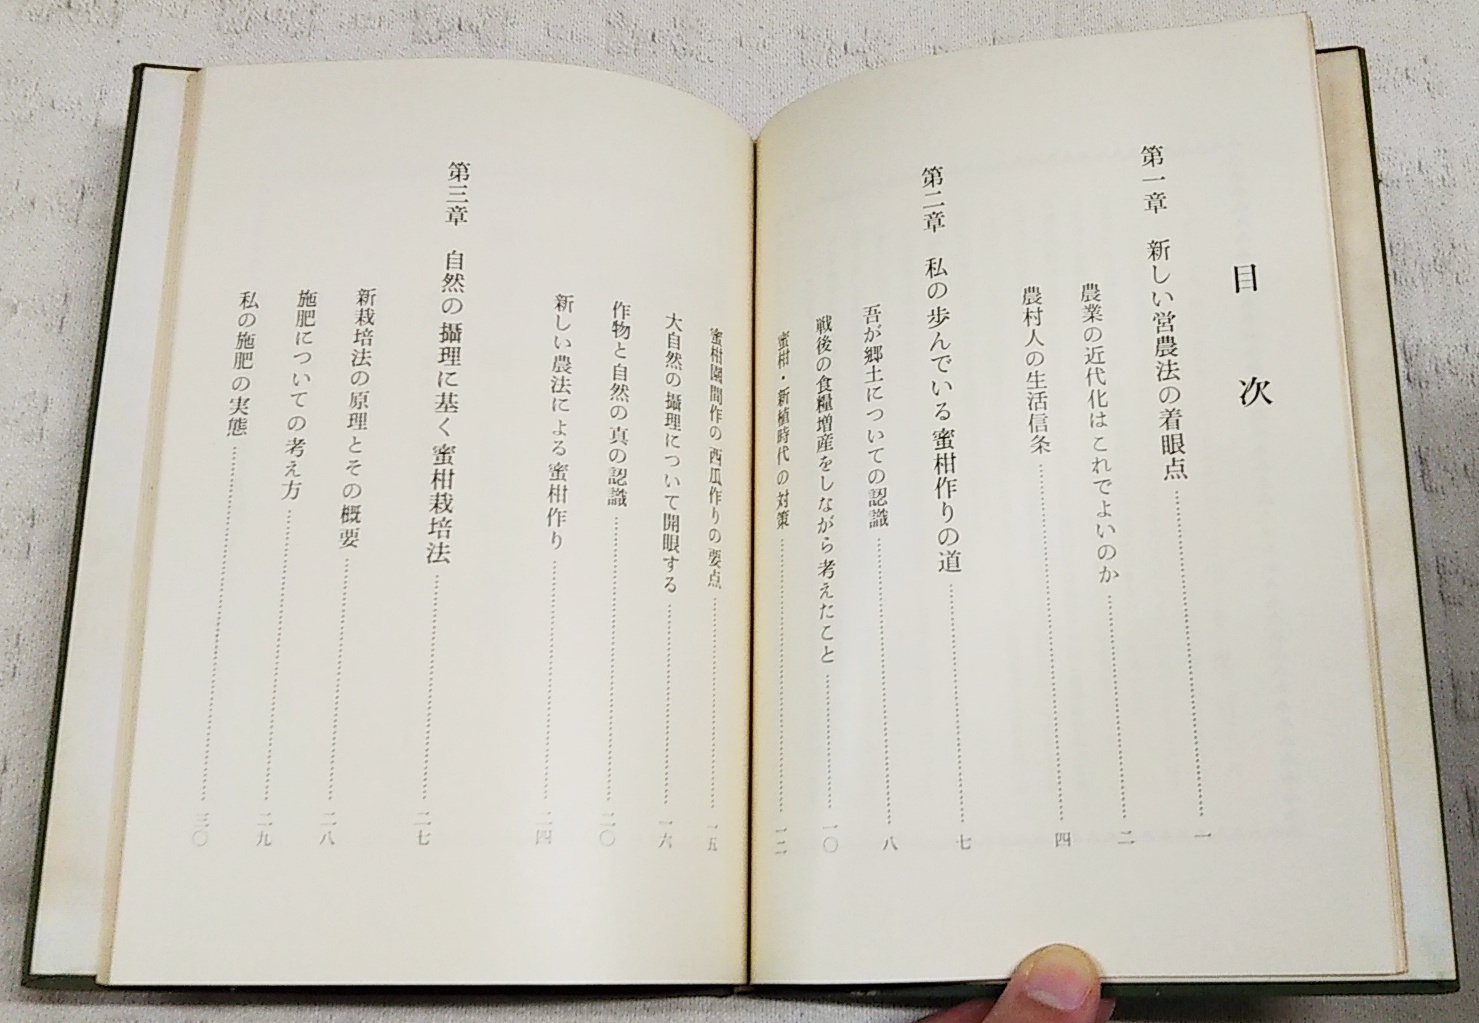 目次
第一章　新しい営農法の着眼点…………一
農業の近代化はこれでよいのか…………二
農村人の生活信条…………四
第二章　私の歩んでいる蜜柑作りの道…………七
吾が郷土についての認識…………八
戦後の食糧増産をしながら考えたこと…………一〇
蜜柑・新植時代の対策…………一二
蜜柑園間作の西瓜作りの要点…………一五
大自然の攝理について開眼する…………一六
作物と自然の真の認識…………二〇
新しい農法による蜜柑作り…………二四
第三章　自然の攝理に基く蜜柑栽培法…………二七
新栽培法の原理とその概要…………二八
施肥についての考え方…………二九
私の施肥の実態…………三〇